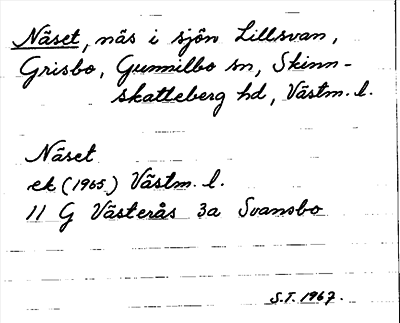 Näset, näs i sjön Lillsvan,
Grisbo, Gunnilbo sn, Skinn-
skatteberg hd, Västm. l.
Näset
ek (1965) Västm. l.
11 G Västerås 3a Svansbo
S.T. 1967.